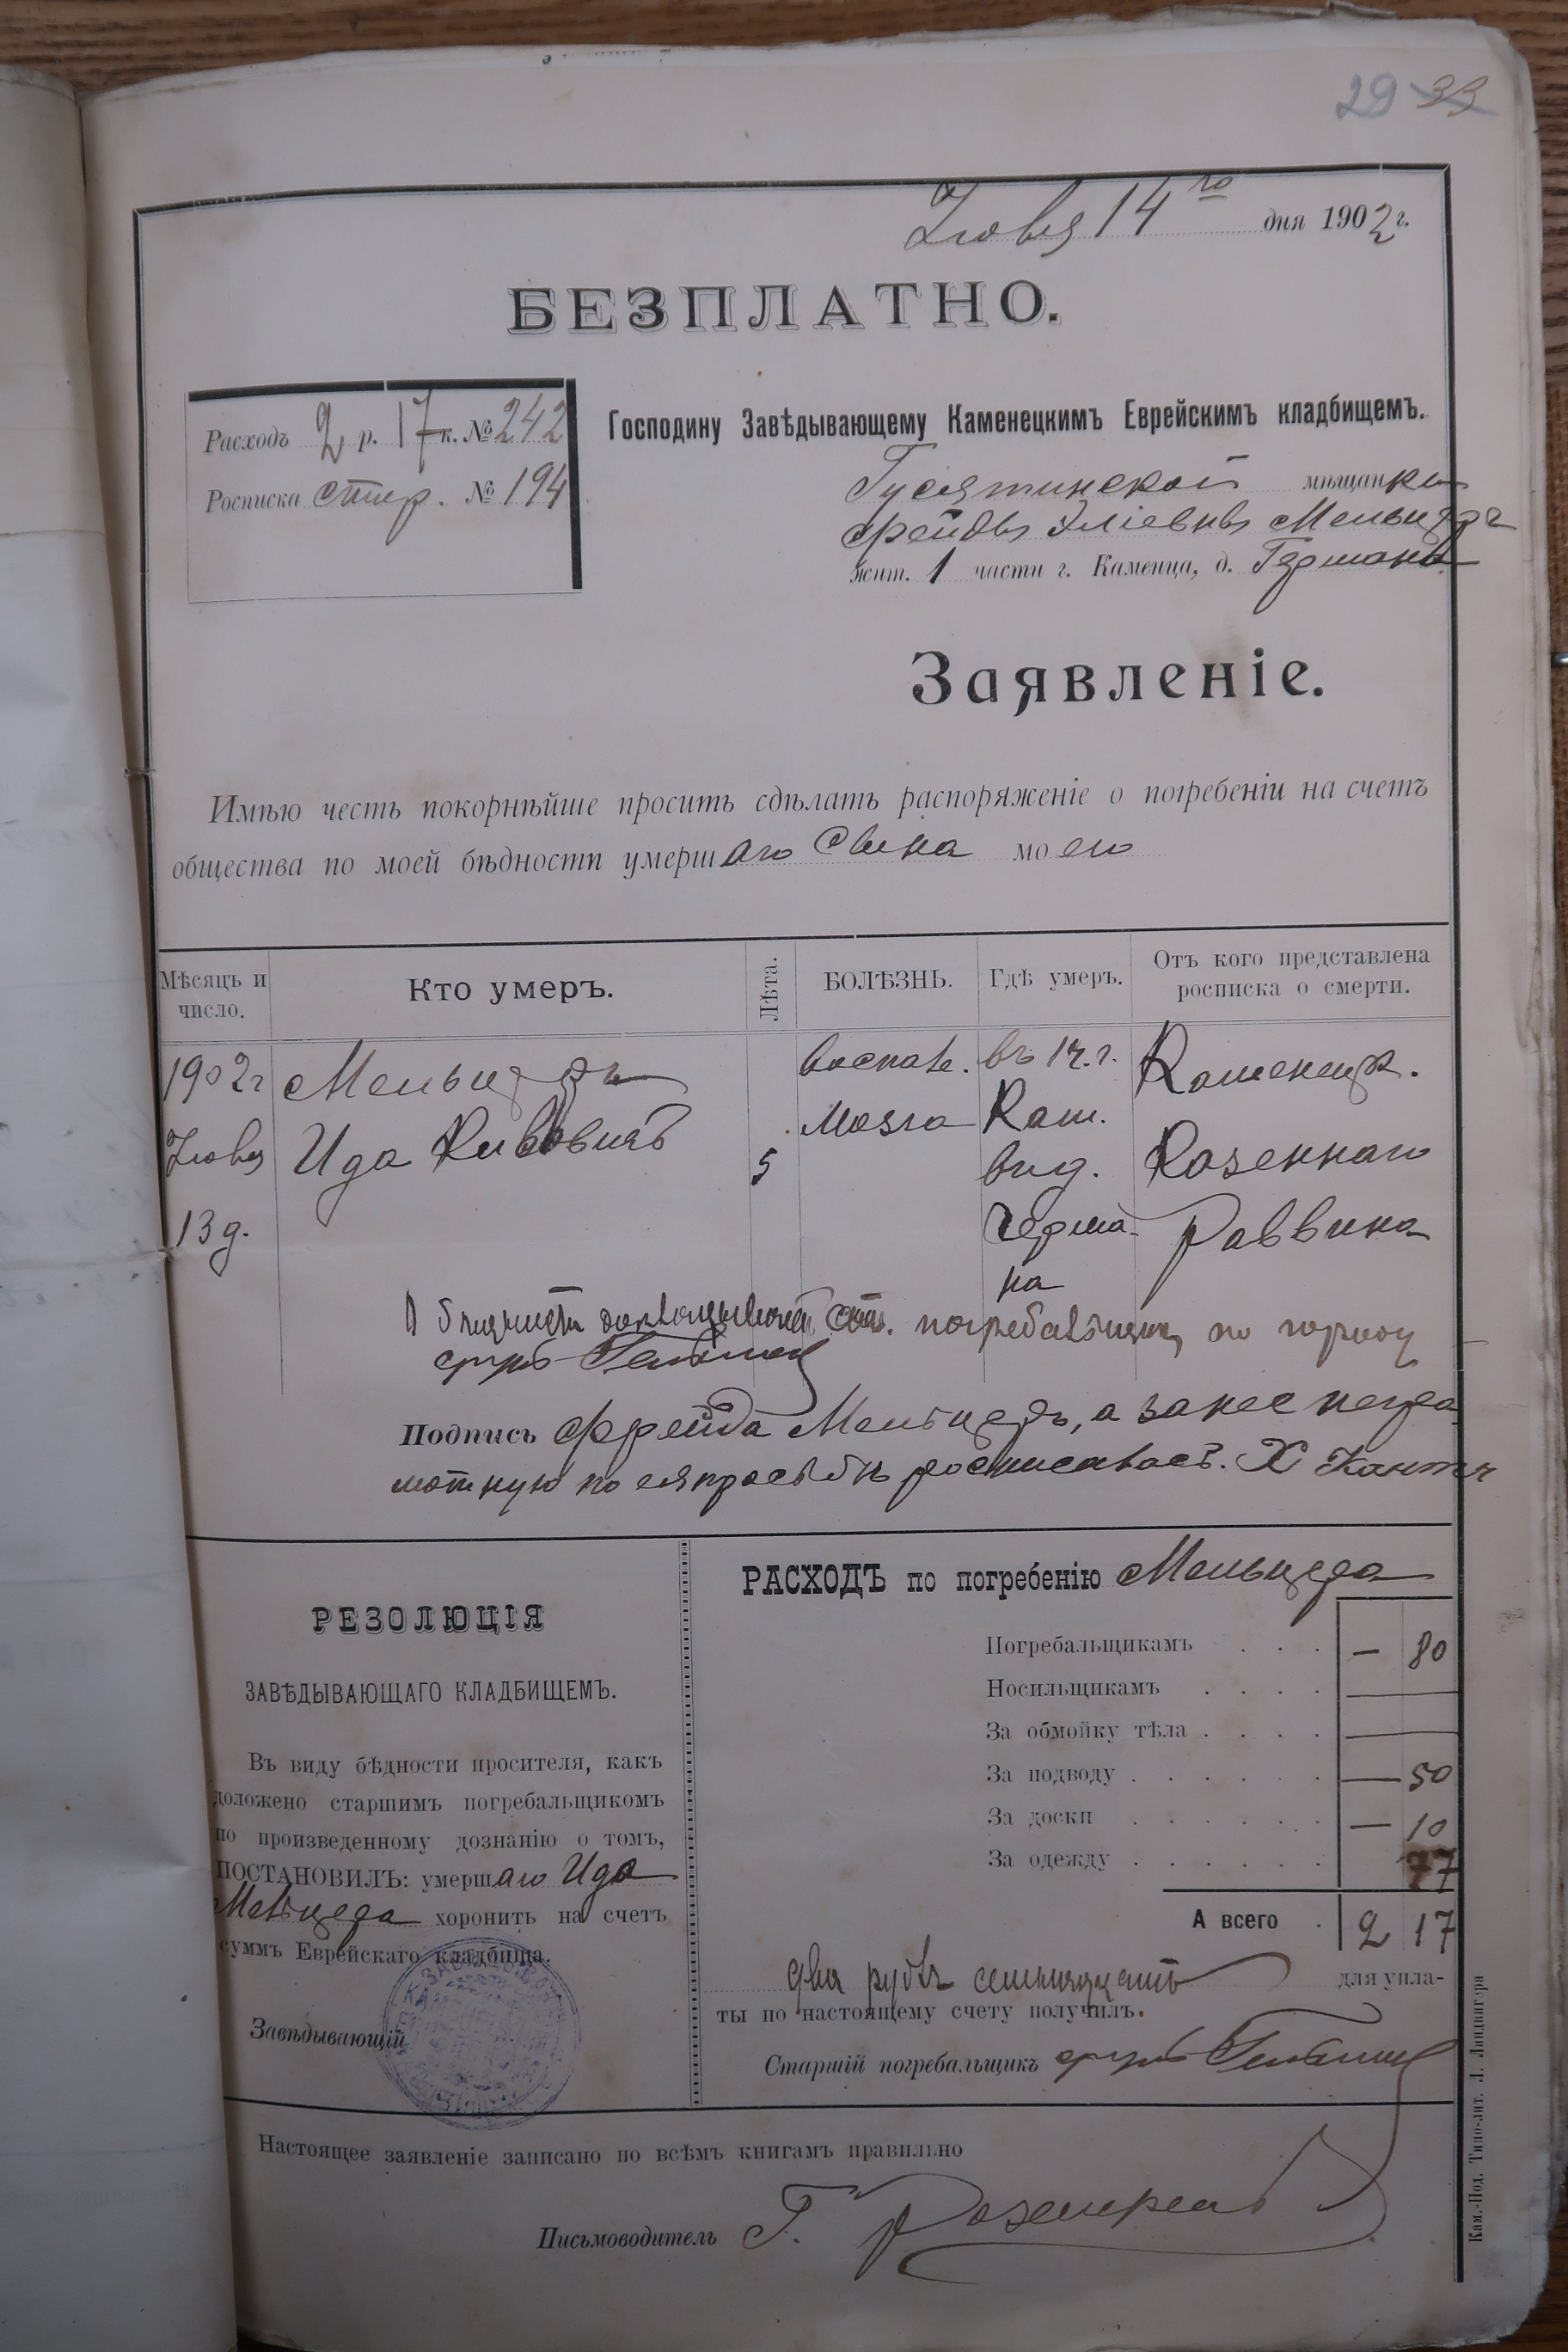 29 33
Іюля 14го дня 1902 г.
БЕЗПЛАТНО.
Расходъ 2 р. 17 к. № 242
Росписка стар. № 194
Господину Завѣдывающему Каменецкимъ Еврейскимъ кладбищемъ.
Гусятинской мѣщанки
Фрейды Эліевны Мельцеръ
жит. 1 части г. Каменца, д. Германа
Заявленіе.
Имѣю честь покорнѣйше просить сдѣлать распоряженіе о погребеніи на счетъ
общества по моей бѣдности умершаго сына моего
Мѣсяцъ и число. Кто умеръ. Лѣта. БОЛѢЗНЬ. Гдѣ умеръ. Отъ кого представлена росписка о смерти.
1902 г Мельцеръ воспал. въ 1 ч. г. Каменецк.
Іюля Ида 5 мозга Кам. Казеннаго
13 д. вид. Раввина
Герма-
на
О бѣдности стар. погребальщикъ по
Подпись Фрейда Мельцеръ, а за нее негра-
мотную по ея просьбѣ росписался. Х Кантъ
РЕЗОЛЮЦІЯ
ЗАВѢДЫВАЮЩАГО КЛАДБИЩЕМЪ.
Въ виду бѣдности просителя, какъ
доложено старшимъ погребальщикомъ
по произведенному дознанію о томъ,
ПОСТАНОВИЛЪ: умершаго Ида
Мельцера хоронить на счетъ
суммъ Еврейскаго кладбища.
Завѣдывающій
РАСХОДЪ по погребенію Мельцера
Погребальщикамъ . . . — 80
Носильщикамъ . . . . —
За обмойку тѣла . . . . —
За подводу . . . . . . — 50
За доски . . . . . . — 10
За одежду . . . . . . 77
А всего . 2 17
два рубл семнадцать для упла-
ты по настоящему счету получилъ.
Старшій погребальщикъ
Настоящее заявленіе записано по всѣмъ книгамъ правильно
Письмоводитель Г.
Кам.-Под. Типо-лит. Л. Ландвигера